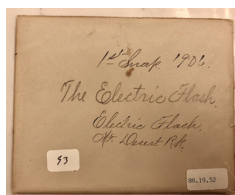 1st Snap 1906.
The Electric Flash.
Electric Flash,
Mt Desert Rk.
93
88.19.32